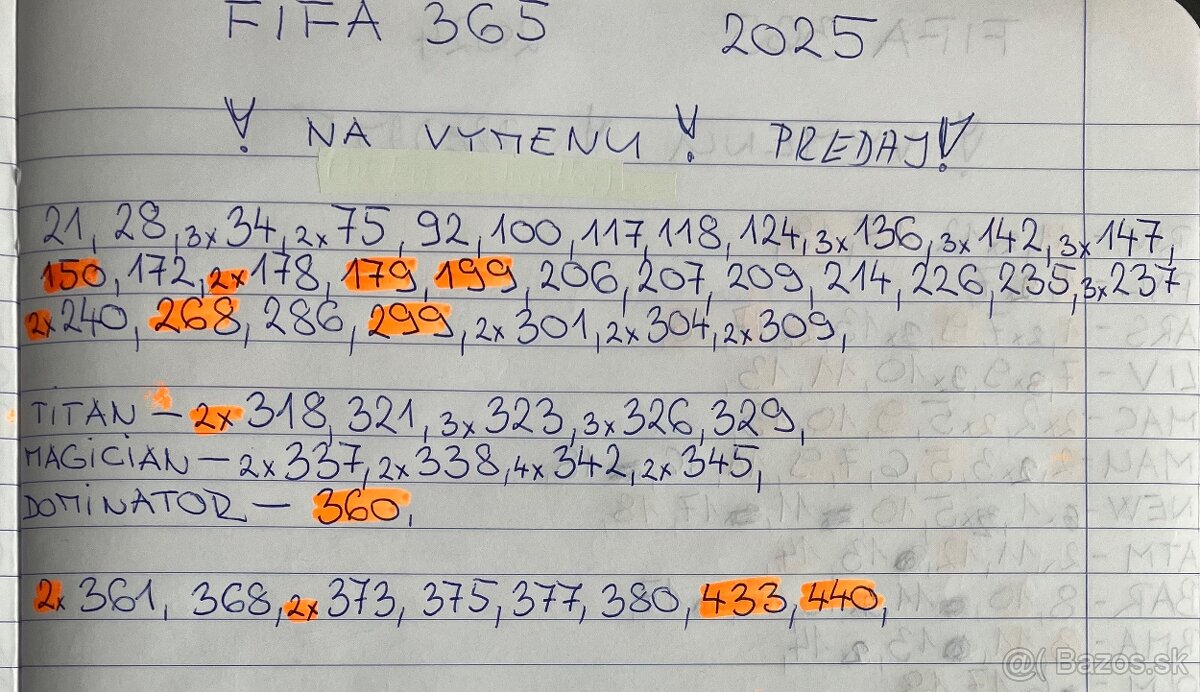 FIFA 365 2025
! NA VYMENU ! PREDAJ !
21, 28, 3x34, 2x75, 92, 100, 117, 118, 124, 3x136, 3x142, 3x147,
150, 172, 2x178, 179, 199, 206, 207, 209, 214, 226, 235, 3x237
2x240, 268, 286, 299, 2x301, 2x304, 2x309,
TITAN – 2x318, 321, 3x323, 3x326, 329,
MAGICIAN – 2x337, 2x338, 4x342, 2x345,
DOMINATOR – 360,
2x361, 368, 2x373, 375, 377, 380, 433, 440,
@( Bazos.sk